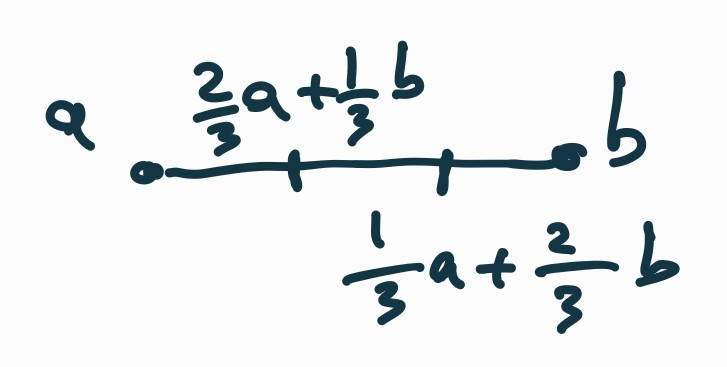 a
2/3 a + 1/3 b
b
1/3 a + 2/3 b